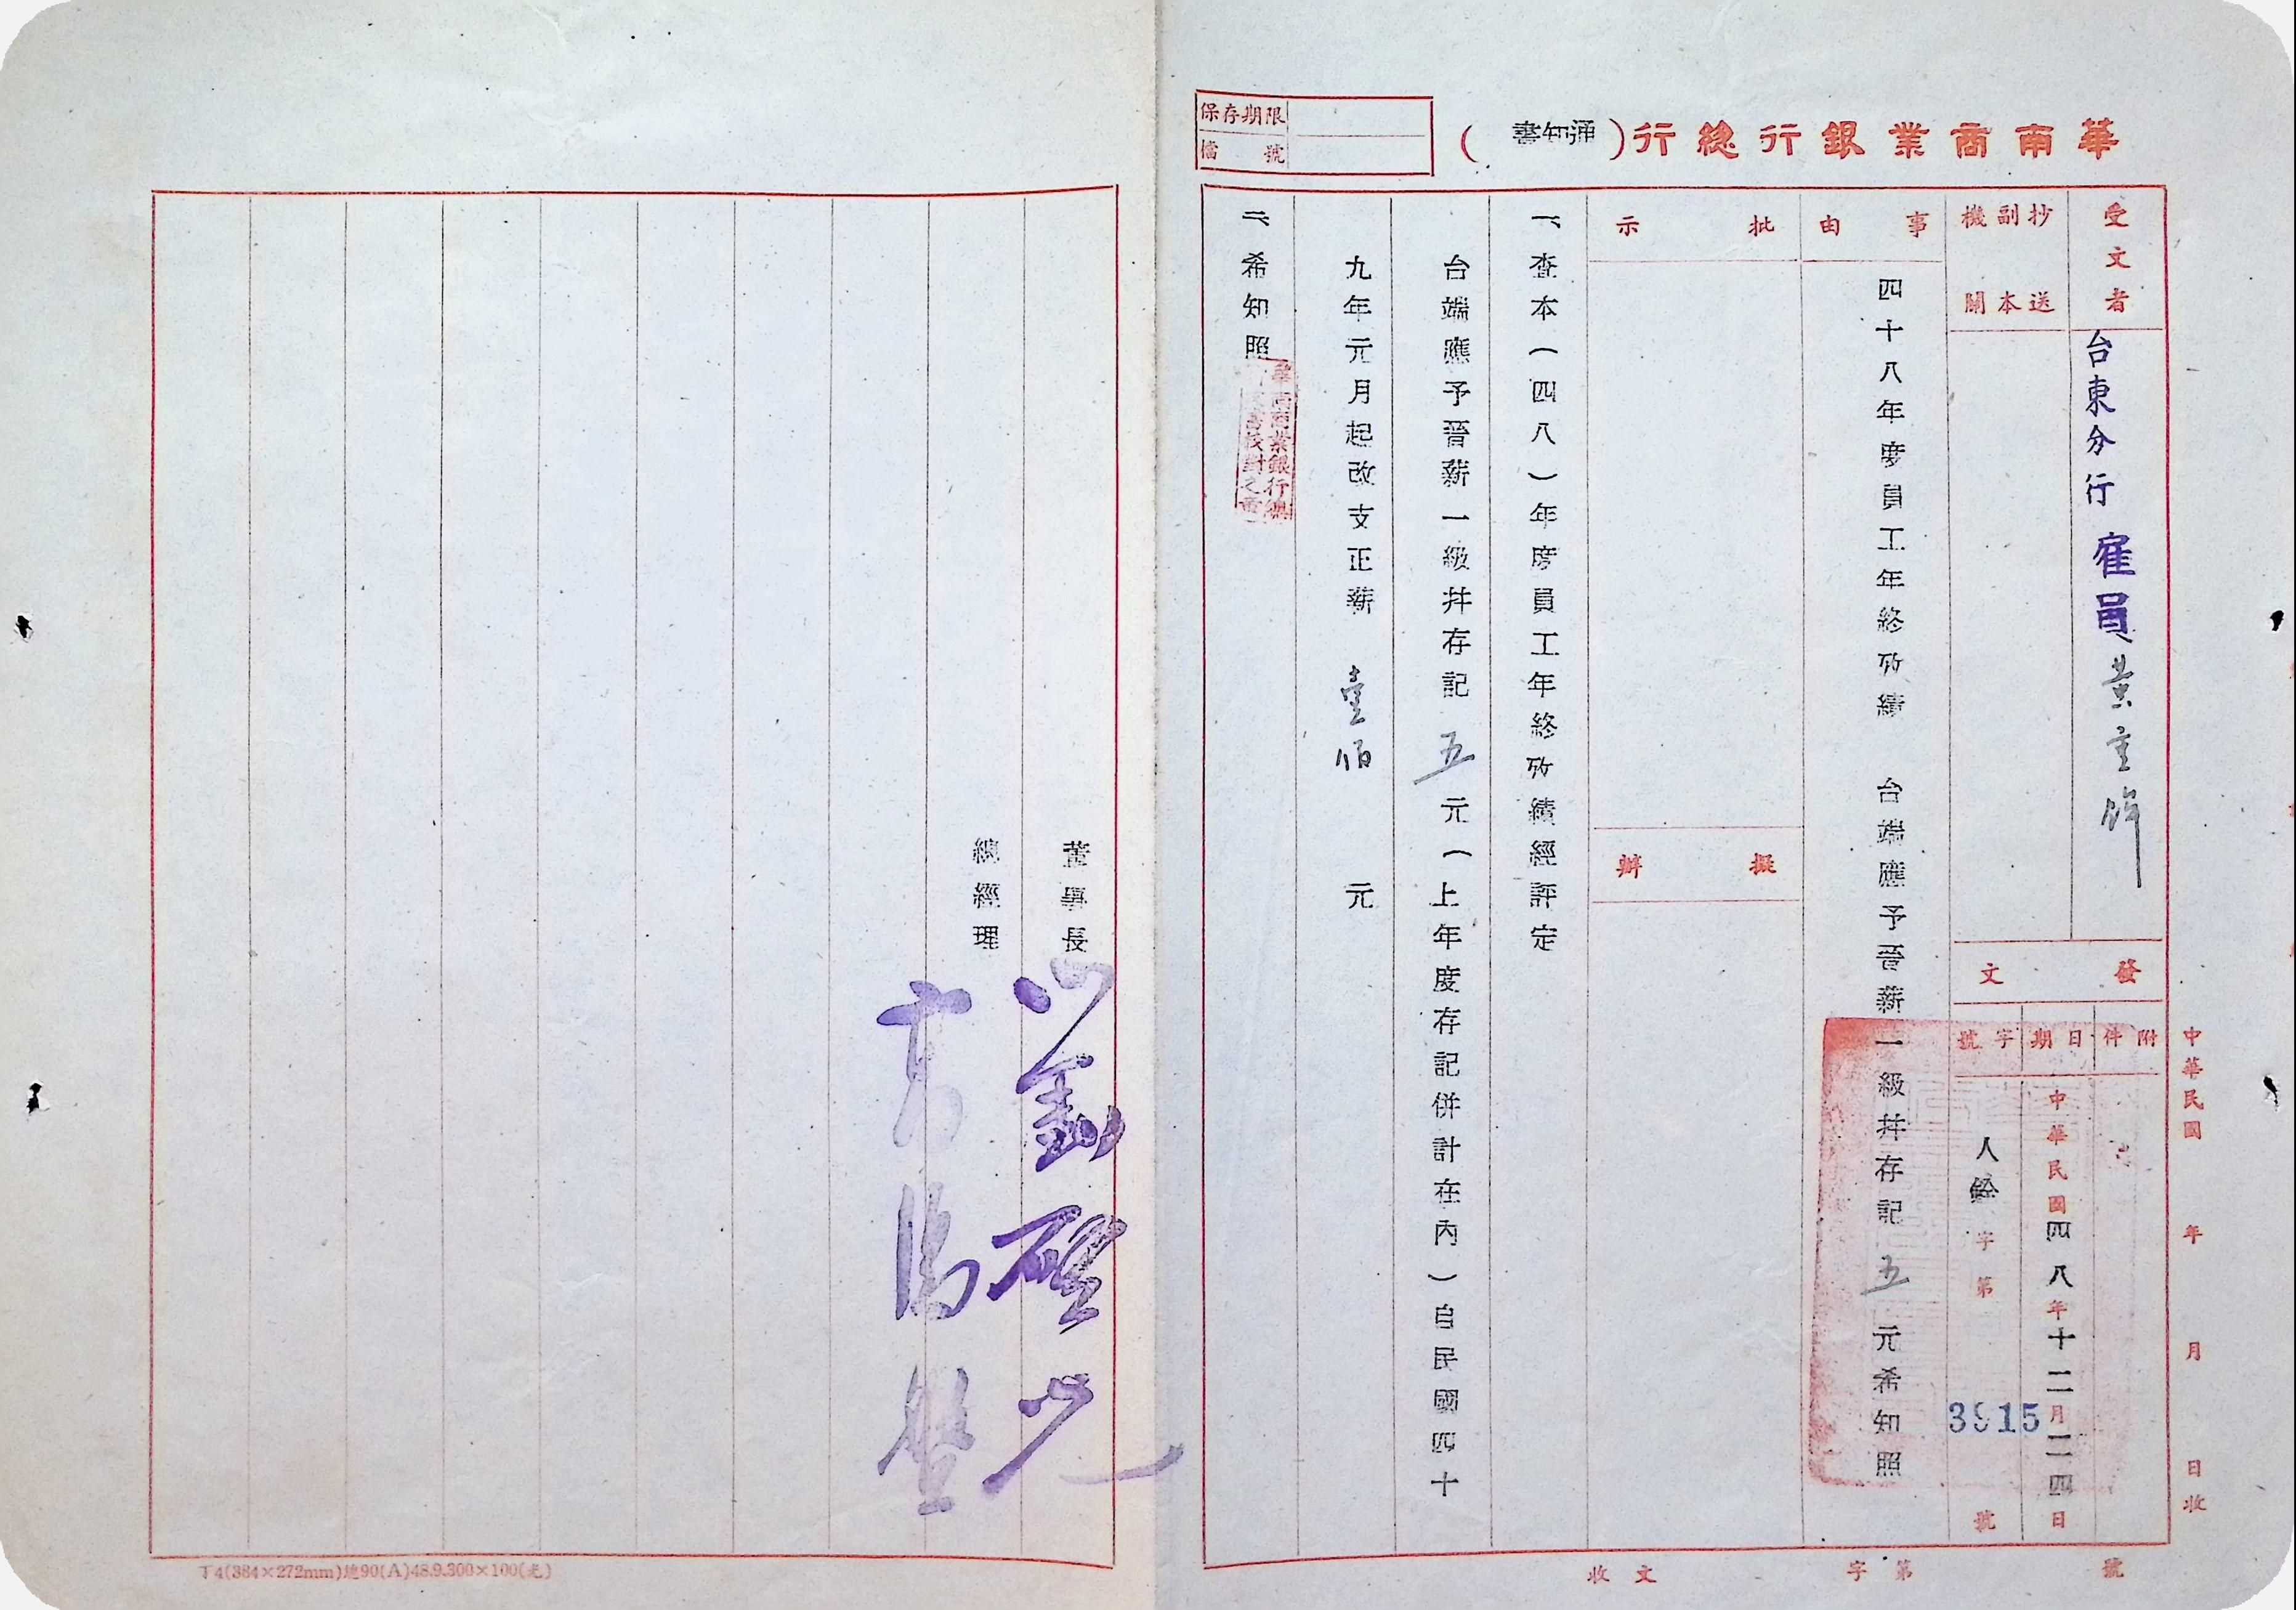 華南商業銀行總行（通知書）
保存期限
檔號
受文者
台東分行 雇員 黃
抄送副本機關
發文
附件
日期
中華民國四八年十二月二四日
字號
人 字第 3915 號
事由
四十八年度員工年終攷績 台端應予晉薪一級幷存記五元希知照
批示
擬辦
一、查本（四八）年度員工年終攷績經評定
台端應予晉薪一級幷存記五元（上年度存記併計在內）自民國四十
九年元月起改支正薪 壹佰 元
二、希知照
董事長
總經理
中華民國 年 月 日收
收文 字第 號
丁4(384×272mm)總90(A)48.9.300×100(光)